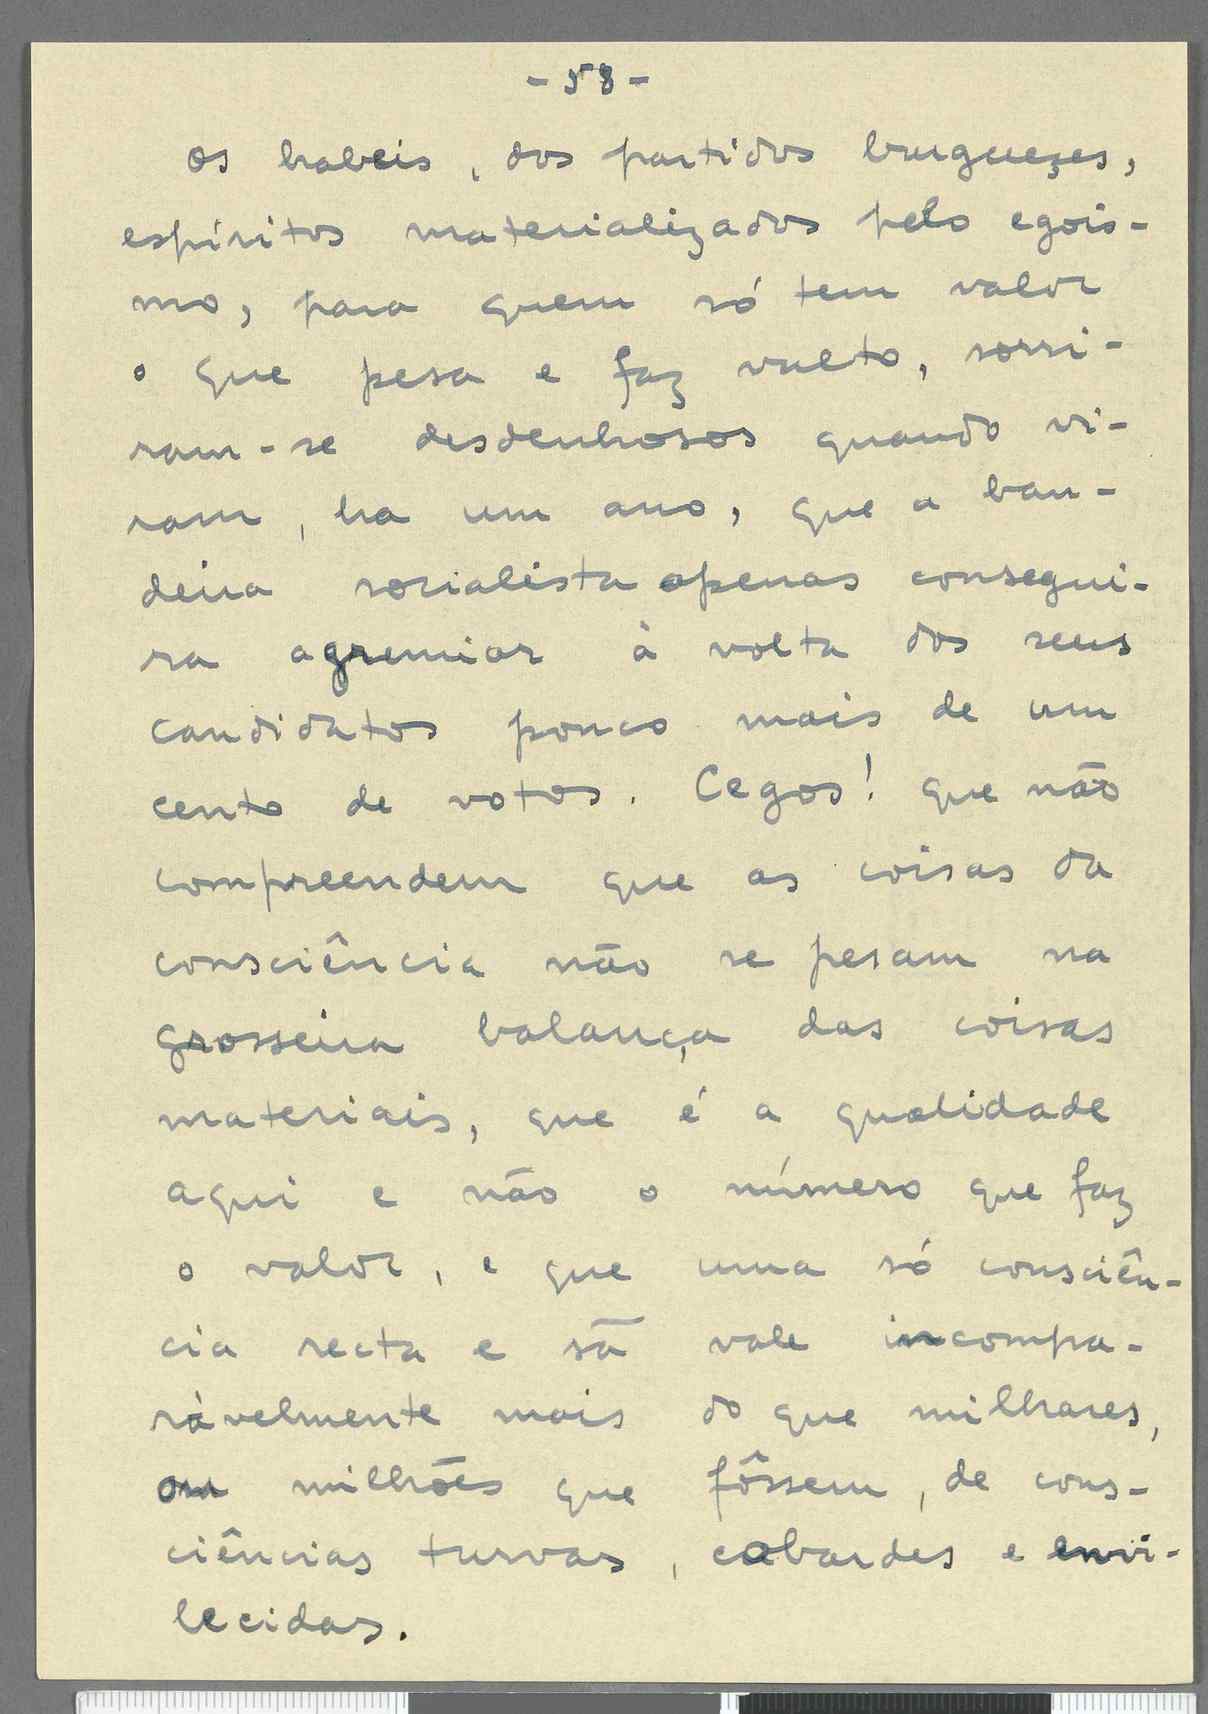 - 58 -
Os habeis, dos partidos burguezes,
espíritos materializados pelo egois-
mo, para quem só tem valor
o que pesa e faz vulto, sorri-
ram-se desdenhosos quando vi-
ram, ha um ano, que a ban-
deira socialista apenas consegui-
ra agremiar à volta dos seus
candidatos pouco mais de um
cento de votos. Cegos! que não
compreendem que as coisas da
consciência não se pesam na
grosseira balança das coisas
materiais, que é a qualidade
aqui e não o número que faz
o valor, e que uma só consciên-
cia recta e sã vale incompa-
ràvelmente mais do que milhares,
ou milhões que fôssem, de cons-
ciências turvas, cobardes e envi-
lecidas.